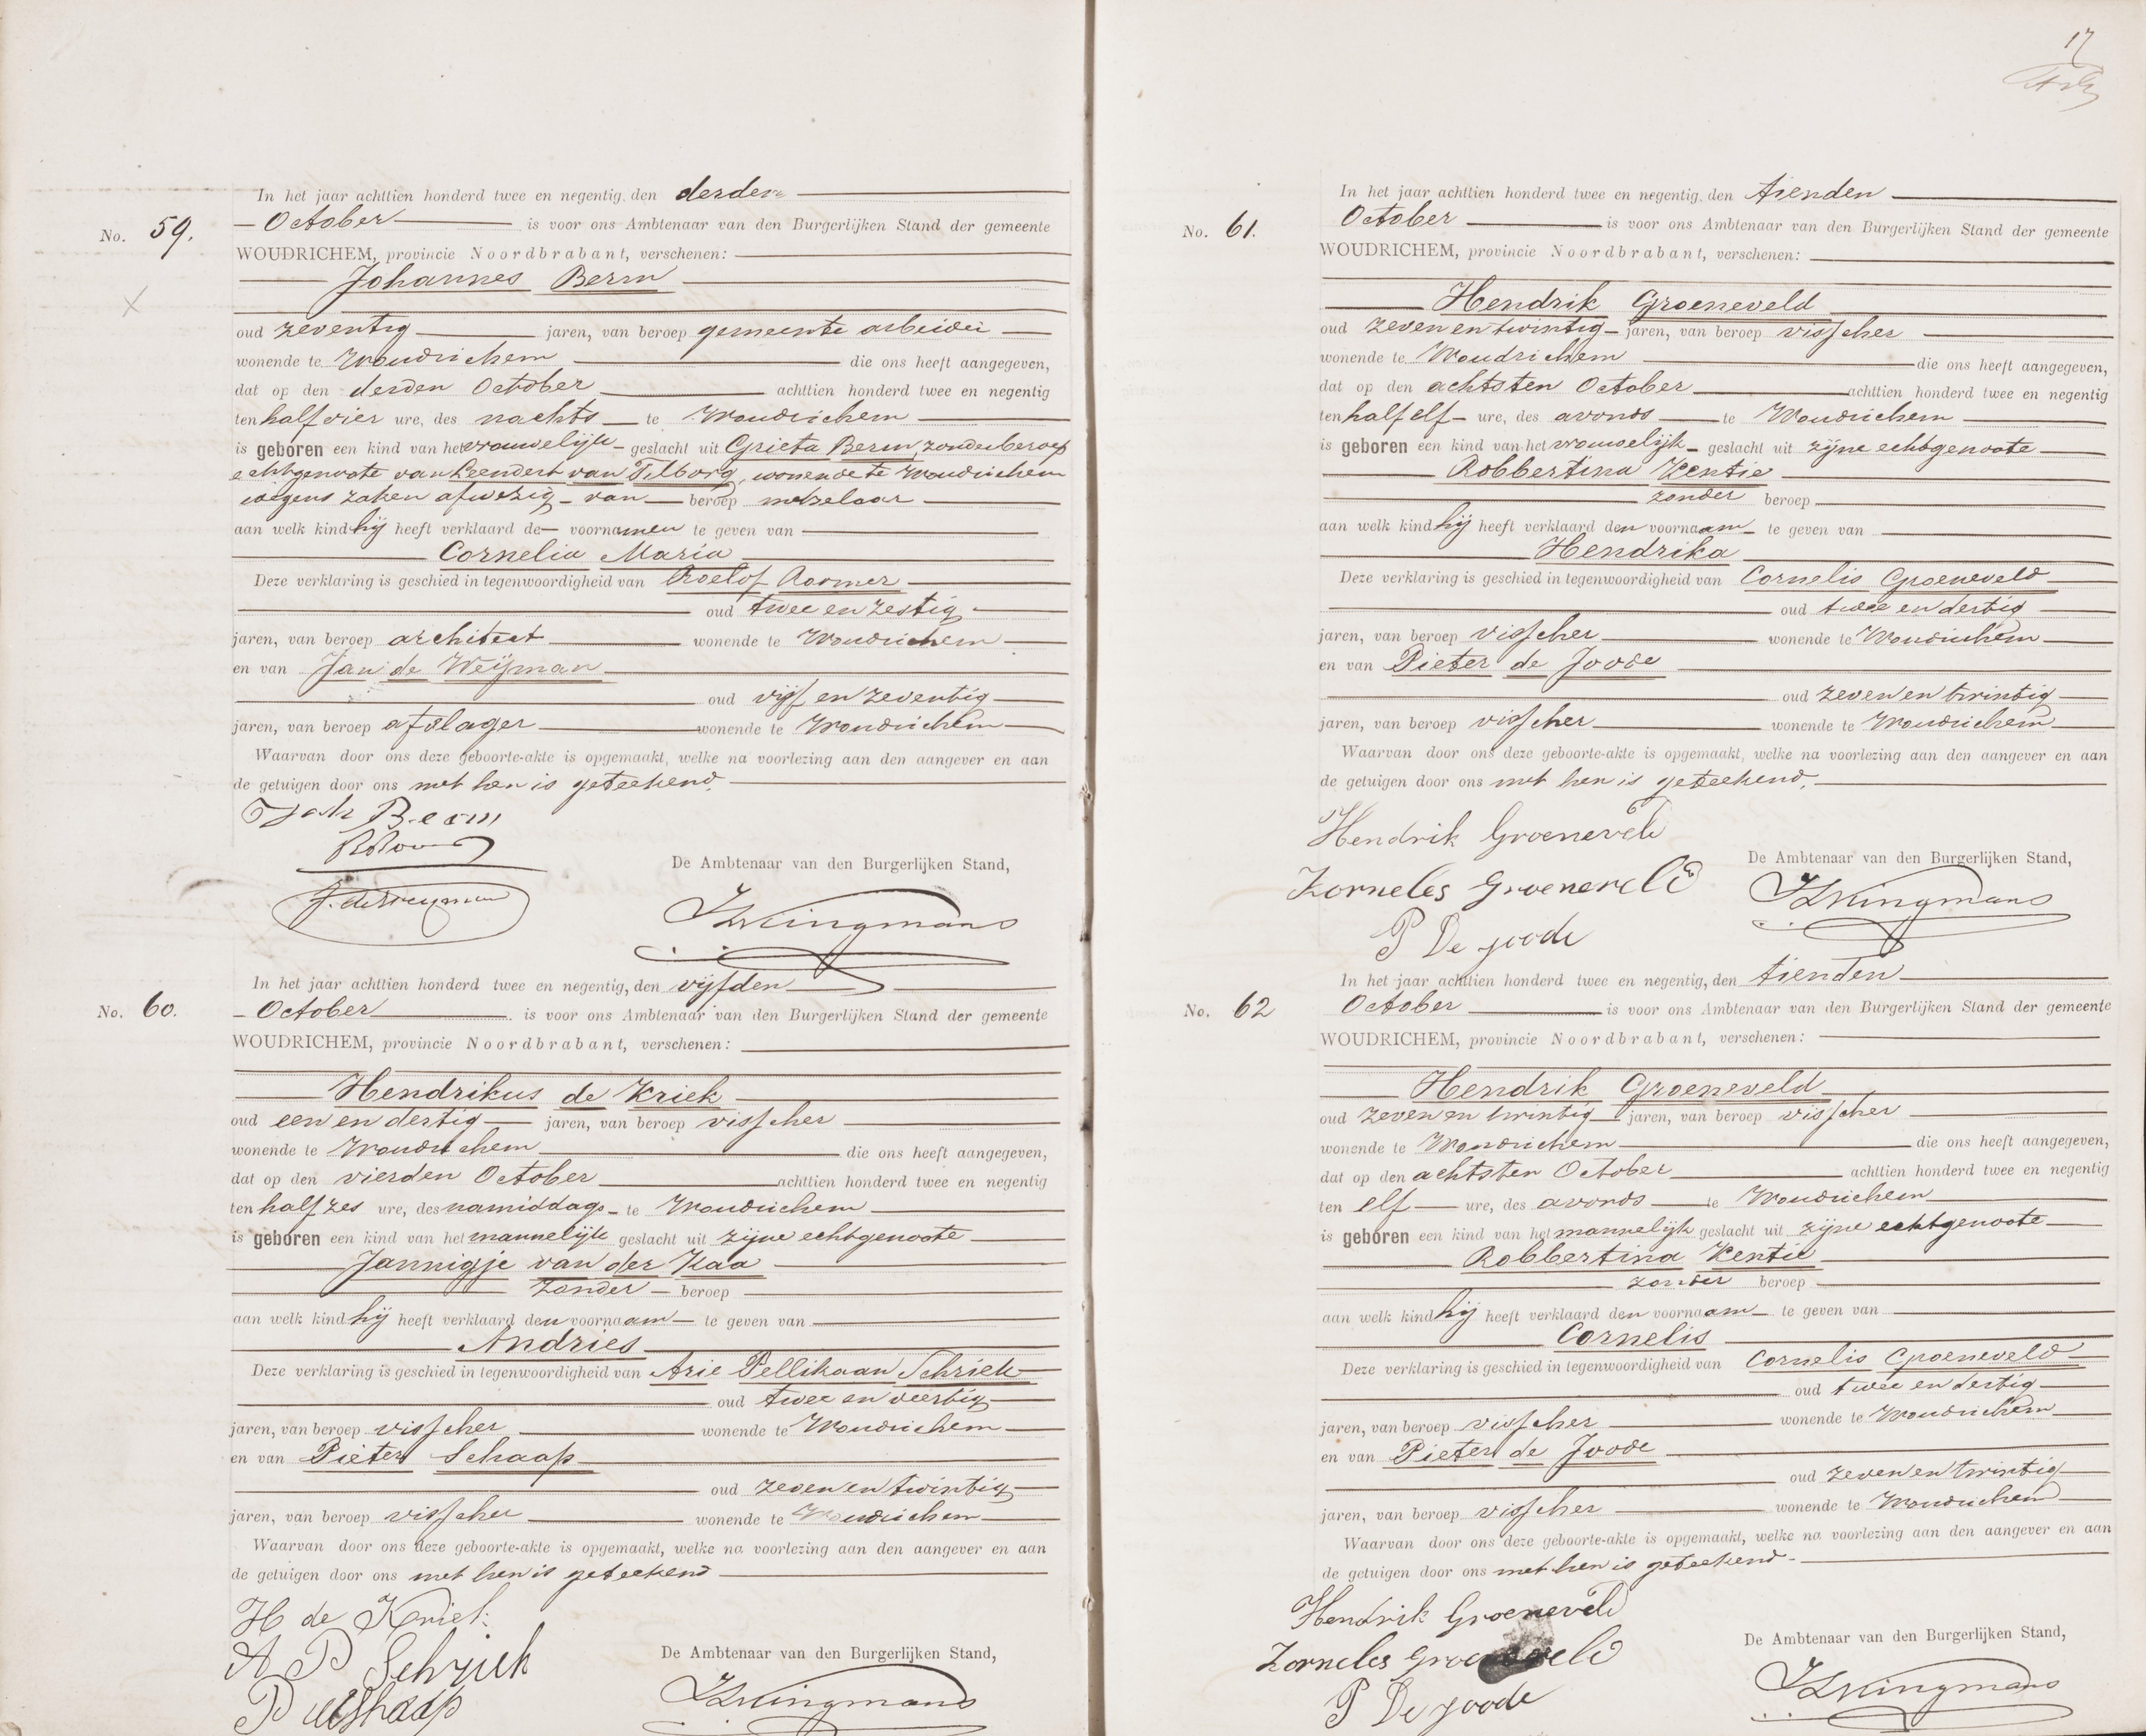 17
No. 59.
In het jaar achttien honderd twee en negentig, den derden
October is voor ons Ambtenaar van den Burgerlijken Stand der gemeente
WOUDRICHEM, provincie Noordbrabant, verschenen:
Johannes Berm
oud zeventig jaren, van beroep gemeente arbeider
wonende te Woudrichem die ons heeft aangegeven,
dat op den derden October achttien honderd twee en negentig
ten half vier ure, des nachts te Woudrichem
is geboren een kind van het vrouwelijk geslacht uit Grieta Berm, zonder beroep
echtgenoote van Leendert van Tilborg, wonende te Woudrichem
wegens zaken afwezig van beroep metselaar
aan welk kind hij heeft verklaard de voornamen te geven van
Cornelia Maria
Deze verklaring is geschied in tegenwoordigheid van Roelof Roomer
oud twee en zestig
jaren, van beroep architect wonende te Woudrichem
en van Jan de Weijman
oud vijf en zeventig
jaren, van beroep afslager wonende te Woudrichem
Waarvan door ons deze geboorte-akte is opgemaakt, welke na voorlezing aan den aangever en aan
de getuigen door ons met hen is geteekend.
Joh Berm
De Ambtenaar van den Burgerlijken Stand,
J. de Weyman
No. 60.
In het jaar achttien honderd twee en negentig, den vijfden
October is voor ons Ambtenaar van den Burgerlijken Stand der gemeente
WOUDRICHEM, provincie Noordbrabant, verschenen:
Hendrikus de Kriek
oud een en dertig jaren, van beroep visscher
wonende te Woudrichem die ons heeft aangegeven,
dat op den vierden October achttien honderd twee en negentig
ten half zes ure, des namiddags te Woudrichem
is geboren een kind van het mannelijk geslacht uit zijne echtgenoote
Jannigje van der Kaa
zonder beroep
aan welk kind hij heeft verklaard den voornaam te geven van
Andries
Deze verklaring is geschied in tegenwoordigheid van Arie Pellikaan Schriek
oud twee en veertig
jaren, van beroep visscher wonende te Woudrichem
en van Pieter Schaap
oud zeven en twintig
jaren, van beroep visscher wonende te Woudrichem
Waarvan door ons deze geboorte-akte is opgemaakt, welke na voorlezing aan den aangever en aan
de getuigen door ons met hen is geteekend
H de Kriek
A P Schriek
De Ambtenaar van den Burgerlijken Stand,
No. 61.
In het jaar achttien honderd twee en negentig, den tienden
October is voor ons Ambtenaar van den Burgerlijken Stand der gemeente
WOUDRICHEM, provincie Noordbrabant, verschenen:
Hendrik Groeneveld
oud zeven en twintig jaren, van beroep visscher
wonende te Woudrichem die ons heeft aangegeven,
dat op den achtsten October achttien honderd twee en negentig
ten half elf ure, des avonds te Woudrichem
is geboren een kind van het vrouwelijk geslacht uit zijne echtgenoote
Robbertina Kentie
zonder beroep
aan welk kind hij heeft verklaard den voornaam te geven van
Hendrika
Deze verklaring is geschied in tegenwoordigheid van Cornelis Groeneveld
oud twee en dertig
jaren, van beroep visscher wonende te Woudrichem
en van Pieter de Joode
oud zeven en twintig
jaren, van beroep visscher wonende te Woudrichem
Waarvan door ons deze geboorte-akte is opgemaakt, welke na voorlezing aan den aangever en aan
de getuigen door ons met hen is geteekend.
Hendrik Groeneveld
De Ambtenaar van den Burgerlijken Stand,
Korneles Groeneveld
P De joode
No. 62
In het jaar achttien honderd twee en negentig, den tienden
October is voor ons Ambtenaar van den Burgerlijken Stand der gemeente
WOUDRICHEM, provincie Noordbrabant, verschenen:
Hendrik Groeneveld
oud zeven en twintig jaren, van beroep visscher
wonende te Woudrichem die ons heeft aangegeven,
dat op den achtsten October achttien honderd twee en negentig
ten elf ure, des avonds te Woudrichem
is geboren een kind van het mannelijk geslacht uit zijne echtgenoote
Robbertina Kentie
zonder beroep
aan welk kind hij heeft verklaard den voornaam te geven van
Cornelis
Deze verklaring is geschied in tegenwoordigheid van Cornelis Groeneveld
oud twee en dertig
jaren, van beroep visscher wonende te Woudrichem
en van Pieter de Joode
oud zeven en twintig
jaren, van beroep visscher wonende te Woudrichem
Waarvan door ons deze geboorte-akte is opgemaakt, welke na voorlezing aan den aangever en aan
de getuigen door ons met hen is geteekend.
Hendrik Groeneveld
De Ambtenaar van den Burgerlijken Stand,
Korneles Groeneveld
P De joode